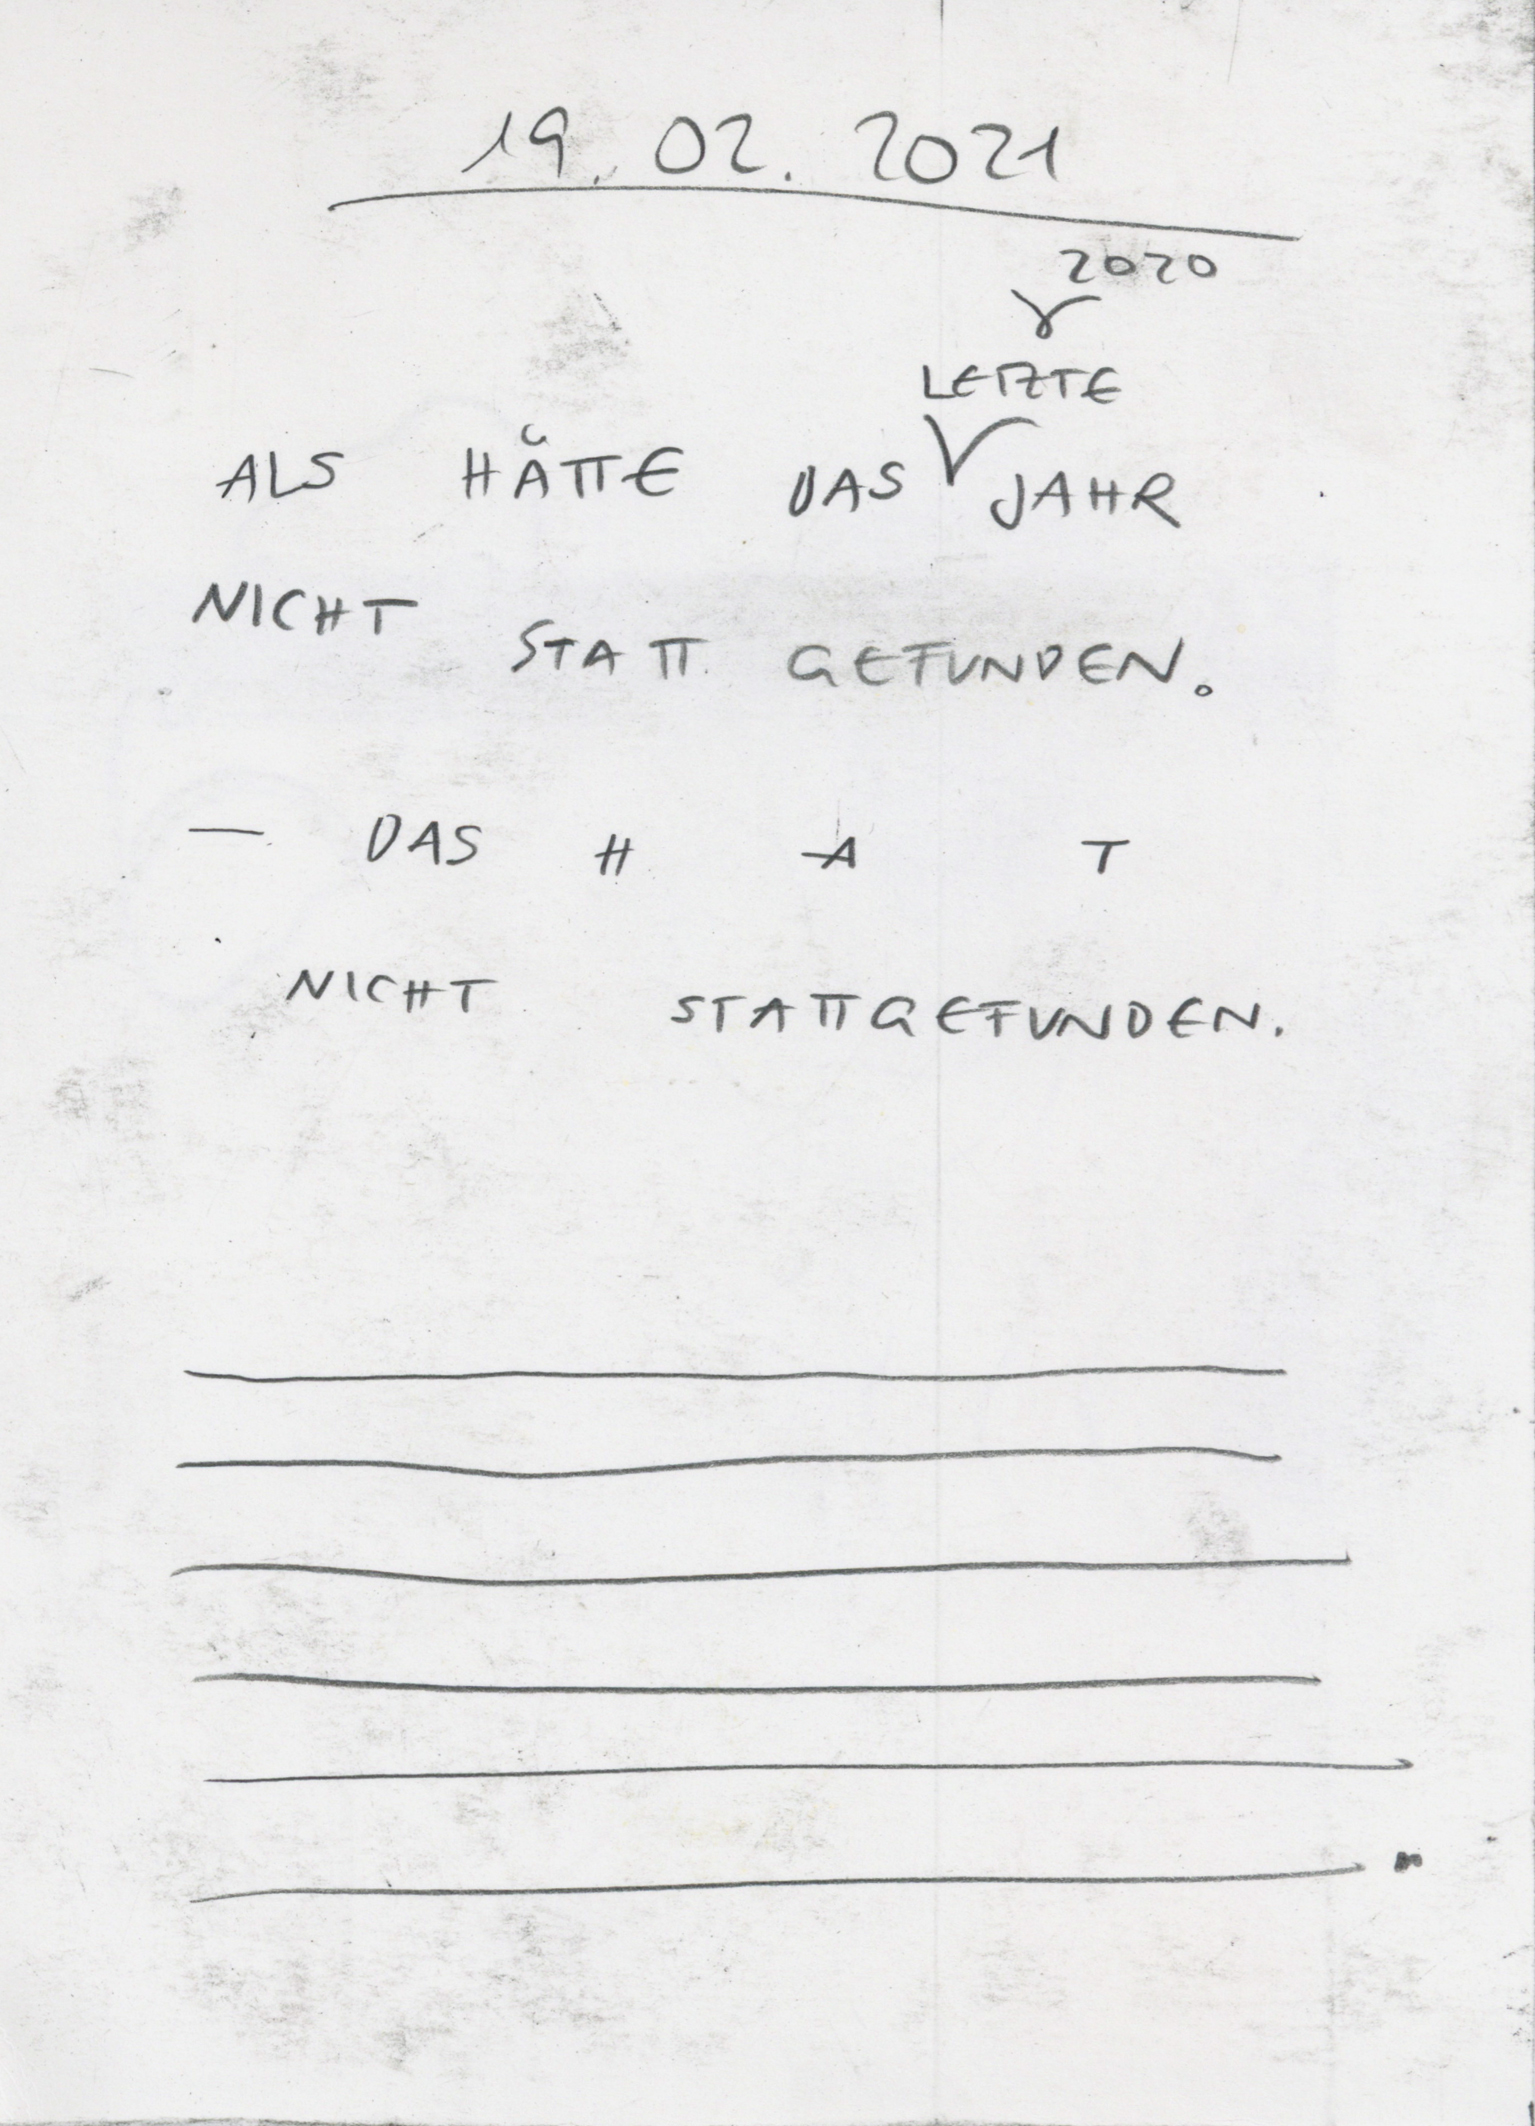 19. 02. 2021
2020
LETZTE
ALS HÄTTE DAS JAHR
NICHT STATT GEFUNDEN.
— DAS H A T
NICHT STATTGEFUNDEN.